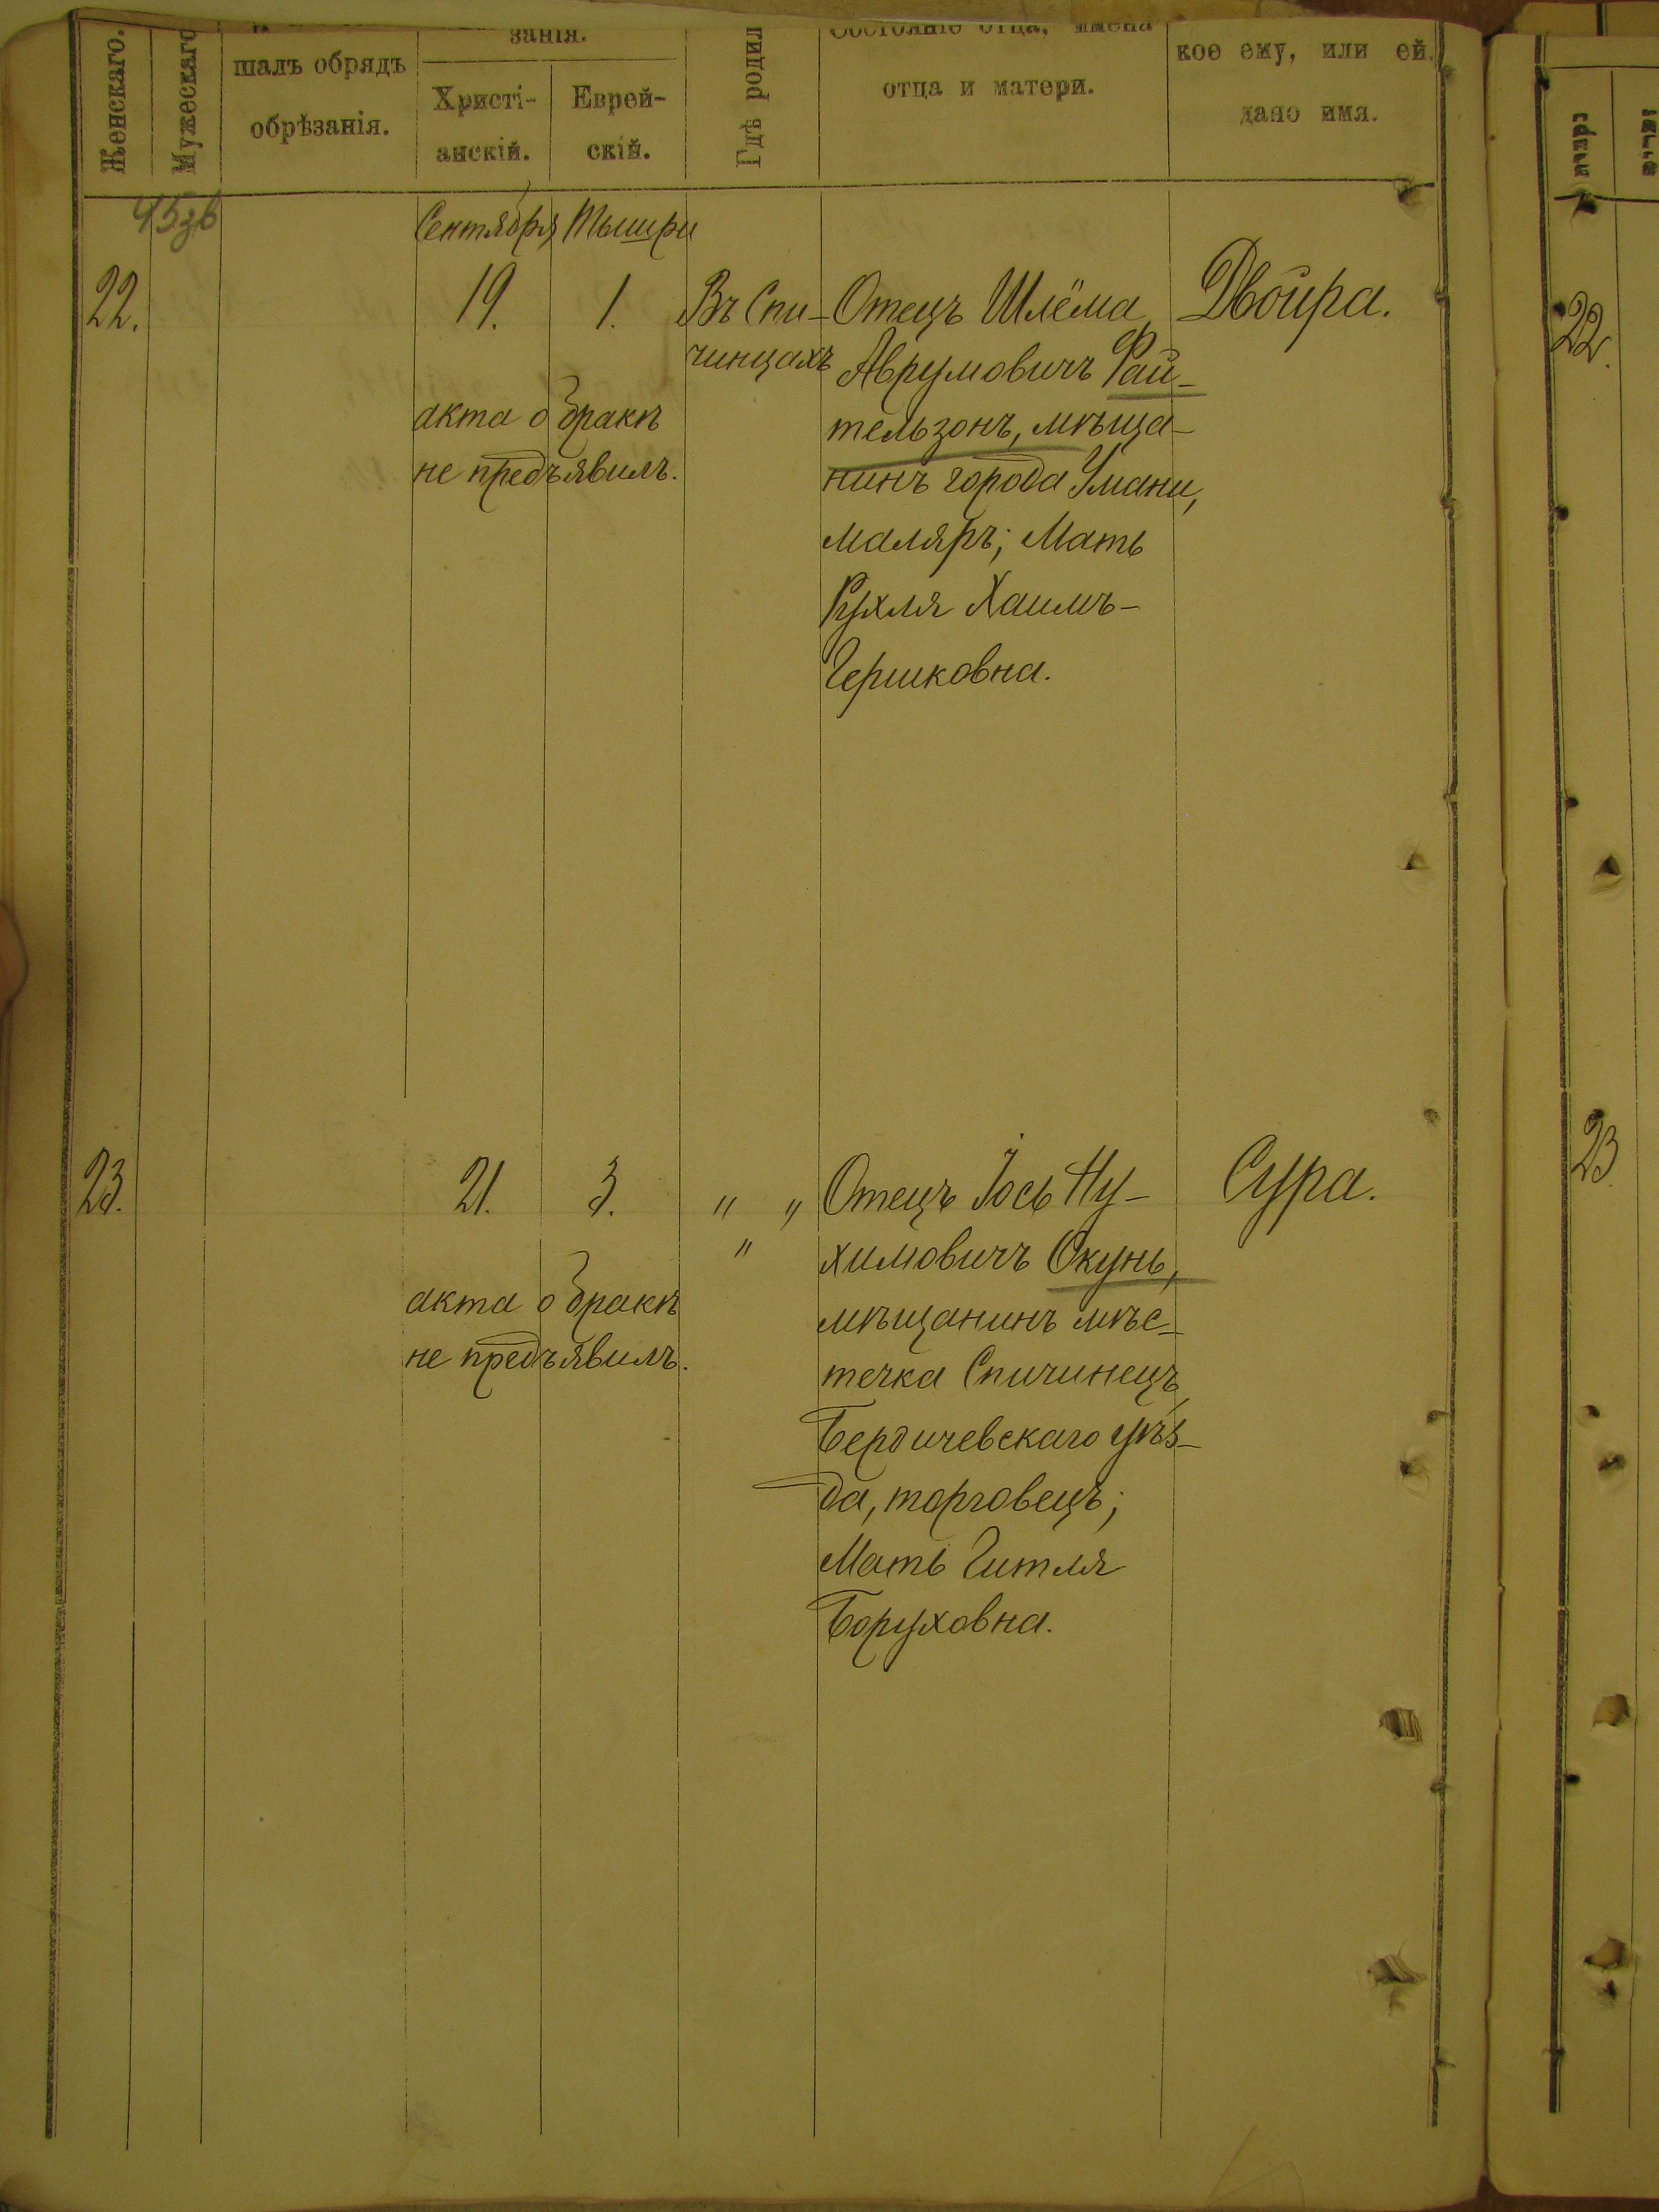 Женскаго.
Мужескаго
шалъ обрядъ
обрѣзанія.
занія.
Христі-
анскій.
Еврей-
скій.
Гдѣ родил
Состояніе отца, имена
отца и матери.
кое ему, или ей.
дано имя.
Сентября Тышри
22.
19.
1.
Въ Спи-
чинцахъ
акта о бракѣ
не предъявилъ.
Отецъ Шлёма
Аврумовичъ Фай-
тельзонъ, мѣща-
нинъ города Умани,
маляръ; Мать
Рухля Хаимъ-
Гершковна.
Двойра.
22.
23.
21.
3.
" "
"
акта о бракѣ
не предъявилъ.
Отецъ Іось Ну-
химовичъ Окунь,
мѣщанинъ мѣс-
течка Спичинецъ
Бердичевскаго уѣз-
да, торговецъ;
Мать Гитля
Боруховна.
Сура.
23.